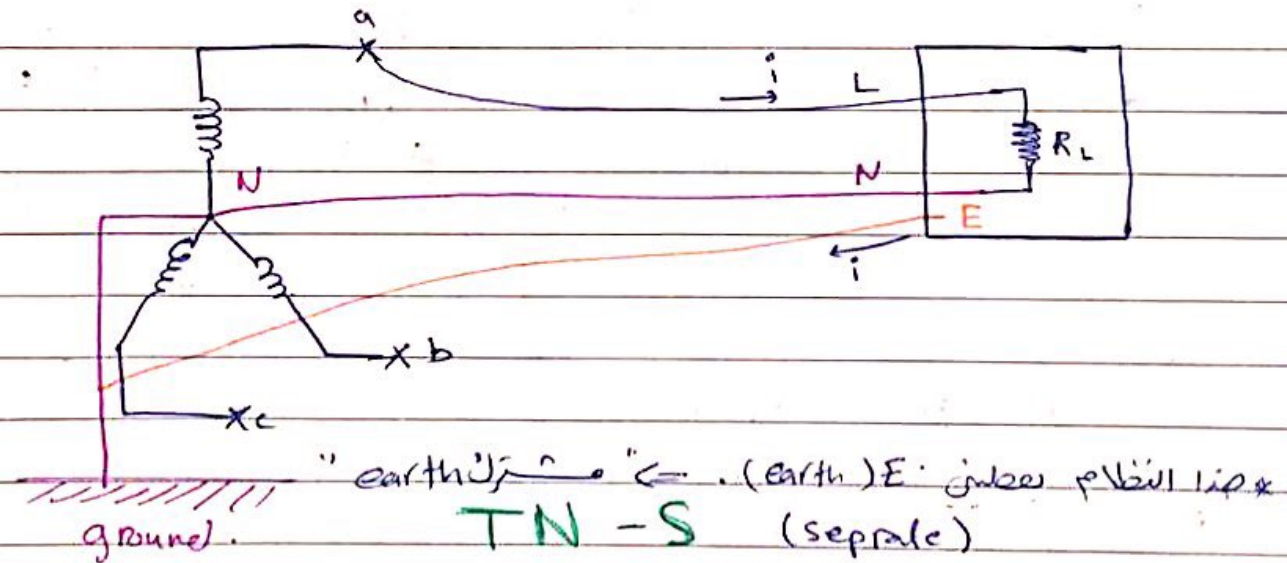 a
i
L
R_L
N
N
E
i
b
c
* هذا النظام بعطيني E (earth). <= "مشترك الـ earth"
ground.
TN - S (seprate)